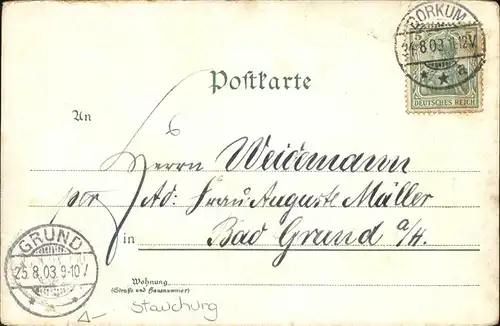 BORKUM
24.8.03.11-12V.
* * a
DEUTSCHES REICH
Postkarte
An
6
Herrn Weidemann
per Ad: Frau Auguste Müller
in Bad Grund a/H.
GRUND
25.8.03.9-10V
Wohnung
(Straße und Hausnummer)
Stauchung